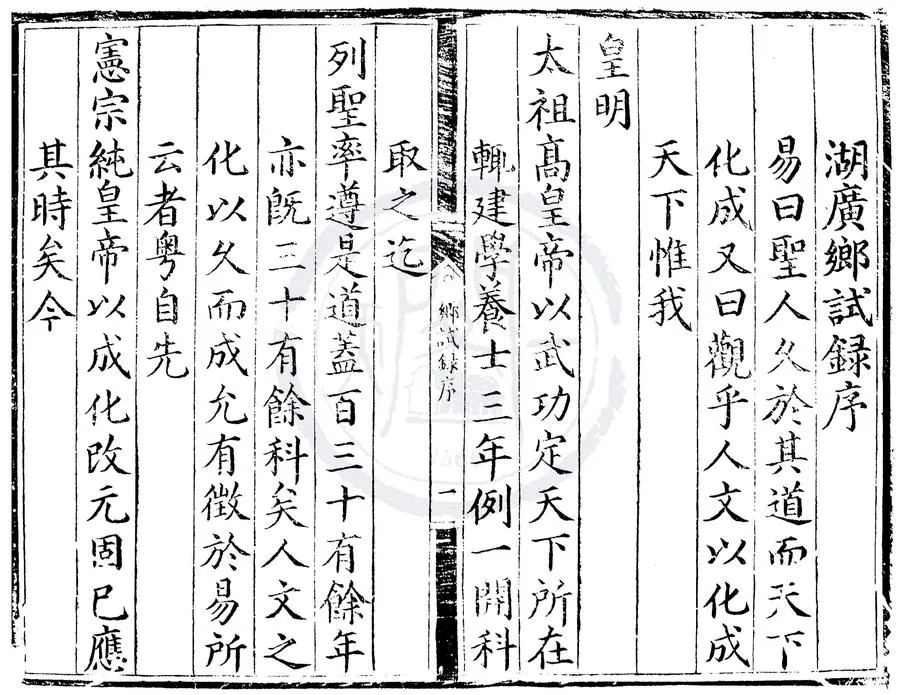 湖廣鄉試録序
易曰聖人久於其道而天下
化成又曰觀乎人文以化成
天下惟我
皇明
太祖髙皇帝以武功定天下所在
輒建學養士三年例一開科
鄉試録序
一
取之迄
列聖率遵是道蓋百三十有餘年
亦既三十有餘科矣人文之
化以久而成允有徵於易所
云者粤自先
憲宗純皇帝以成化改元固已應
其時矣今